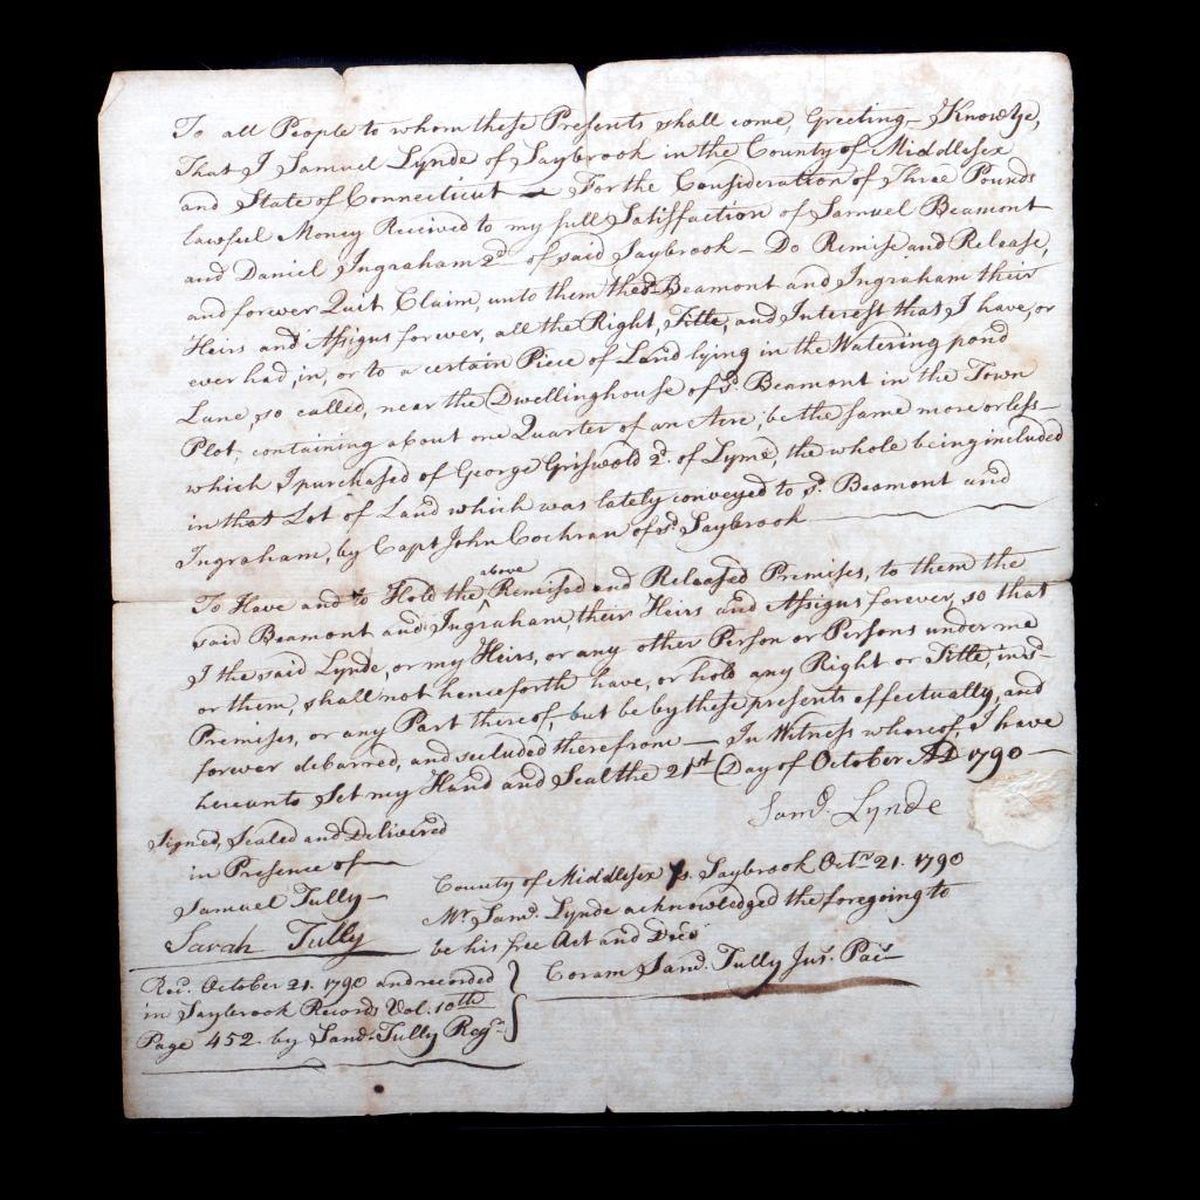 To all People to whom these Presents shall come, Greeting – Know Ye,
That I Samuel Lynde of Saybrook in the County of Middlesex
and State of Connecticut — For the Consideration of Three Pounds
lawful Money Received to my full Satisfaction of Samuel Beamont
and Daniel Ingraham 2d of said Saybrook – Do Remise and Release,
and forever Quit Claim, unto them the sd Beamont and Ingraham their
Heirs and Assigns forever, all the Right, Title, and Interest that I have, or
ever had, in, or to a certain Piece of Land lying in the Watering pond
Lane, so called, near the Dwellinghouse of sd. Beamont in the Town
Plot, containing about one Quarter of an Acre, be the same more or less –
which I purchased of George Griswold 2d. of Lyme, the whole being included
in that Lot of Land which was lately conveyed to sd. Beamont and
Ingraham, by Capt John Cochran of sd. Saybrook
To Have and to Hold the above Remised and Released Premises, to them the
said Beamont and Ingraham, their Heirs and Assigns forever, so that
I the said Lynde, or my Heirs, or any other Person or Persons under me
or them, shall not henceforth have, or hold any Right or Title, in sd –
Premises, or any Part thereof, but be by these presents effectually, and
forever debarred, and secluded therefrom — In Witness whereof, I have
hereunto Set my Hand and Seal the 21st Day of October AD 1790 —
Saml. Lynde
Signed, Sealed and Delivered
in Presence of
Samuel Tully –
Sarah Tully
County of Middlesex ss. Saybrook Octr 21. 1790
Mr Saml. Lynde acknowledged the foregoing to
be his free Act and Deed
Coram Saml. Tully Jus. Pacs
Recd. October 21. 1790 and recorded
in Saybrook Records Vol. 10th
Page 452. by Saml. Tully Regr